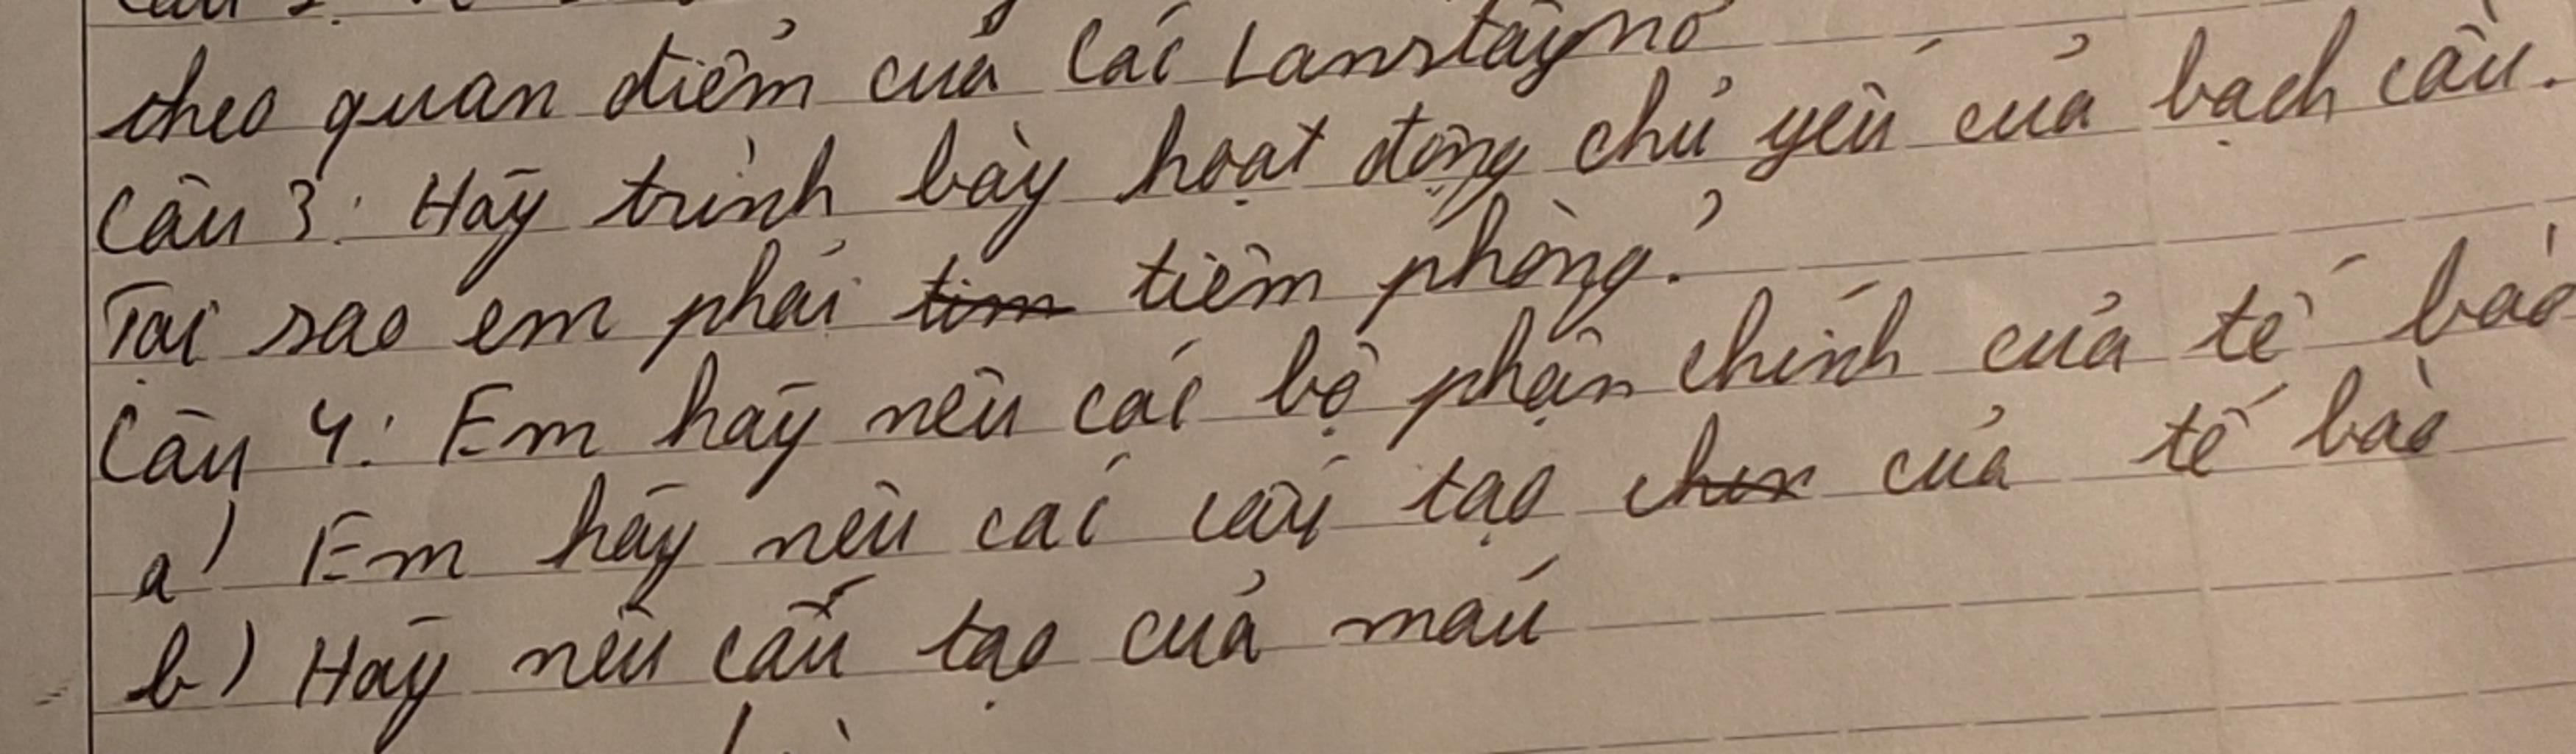 theo quan điểm của Các Lanstaynơ
Câu 3: Hãy trình bày hoạt động chủ yếu của bạch cầu.
Tại sao em phải tiêm phòng?
Câu 4: Em hãy nêu các bộ phận chính của tế bào
a) Em hãy nêu các cấu tạo của tế bào
b) Hãy nêu cấu tạo của máu